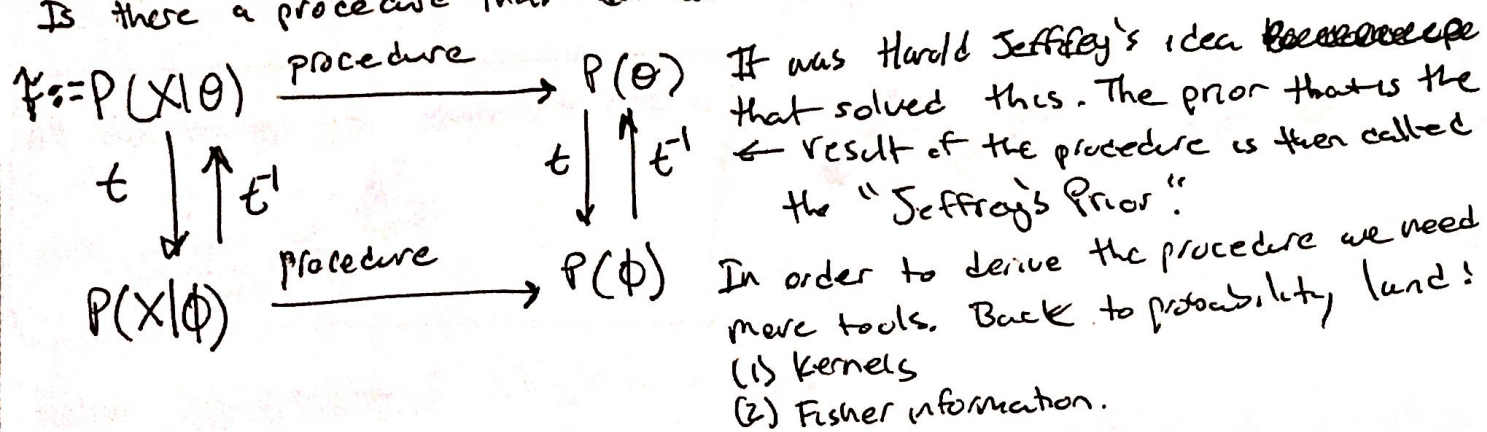 Is there a procedure that
F:=P(X|θ) procedure P(θ)
t t⁻¹ t t⁻¹
P(X|ϕ) procedure P(ϕ)
It was Harold Jeffrey's idea
that solved this. The prior that is the
← result of the procedure is then called
the "Jeffrey's Prior".
In order to derive the procedure we need
more tools. Back to probability land!
(1) Kernels
(2) Fisher information.